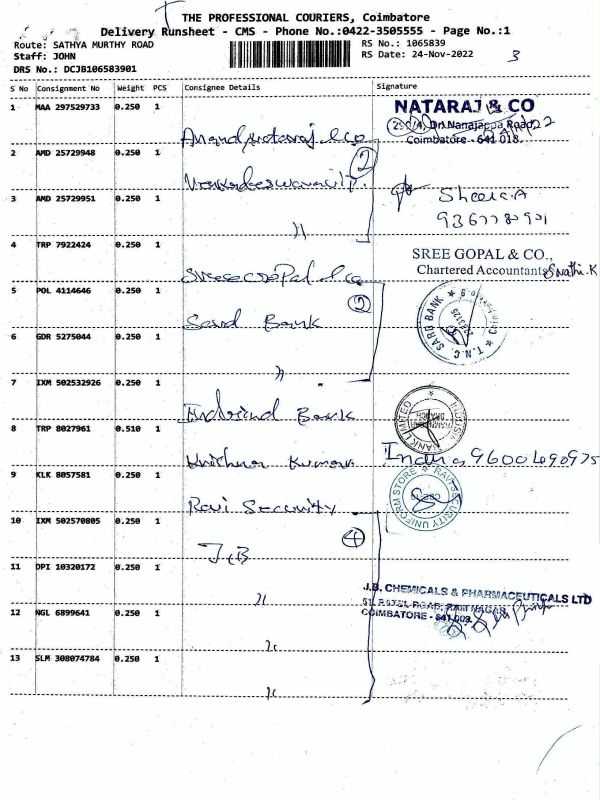 THE PROFESSIONAL COURIERS, Coimbatore
Delivery Runsheet - CMS - Phone No.:0422-3505555 - Page No.:1
Route: SATHYA MURTHY ROAD
Staff: JOHN
DRS No.: DCJB106583901
RS No.: 1065839
RS Date: 24-Nov-2022
3
S No Consignment No Weight PCS Consignee Details Signature
1 MAA 297529733 0.250 1
NATARAJ & CO
Dr. Nanajappa Road
Coimbatore - 641 018.
Anand Nataraj & Co
2 AMD 25729948 0.250 1
2
3 AMD 25729951 0.250 1
Sheela.A
"
4 TRP 7922424 0.250 1
SREE GOPAL & CO.,
Chartered Accountants
Swathi.K
Sree Gopal & Co
5 POL 4114646 0.250 1
2
Sard Bank
SARD BANK * T.N.C.
6 GDR 5275044 0.250 1
"
7 IXM 502532926 0.250 1
Indusind Bank
BANK LIMITED
BRANCH
8 TRP 8027961 0.510 1
Krishna Kumar
9600490975
9 KLK 8057581 0.250 1
Ravi Security
RAVI SECURITY UNIFORM STORE
10 IXM 502570805 0.250 1
4
J.B
11 OPI 10320172 0.250 1
"
J.B. CHEMICALS & PHARMACEUTICALS LTD
51, PATEL ROAD, RAM NAGAR,
COIMBATORE - 641 009.
12 NGL 6899641 0.250 1
"
13 SLM 308074784 0.250 1
"